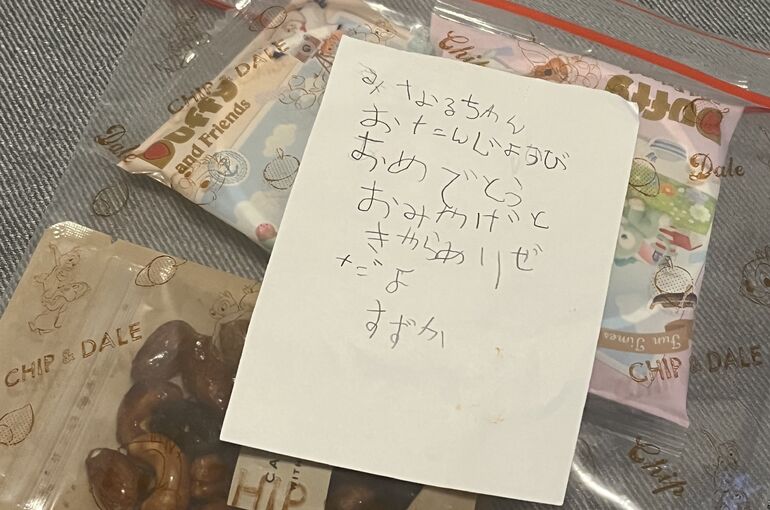 みなるちゃん
おたんじょなび
おめでとう
おみやげと
きからめりぜ
だよ
すずか
CHIP & DALE
Duffy
and Friends
Dale
Chip
Duffy
Dale
Fun Times
CHIP & DALE
CHIP & DALE
Chip
HIP